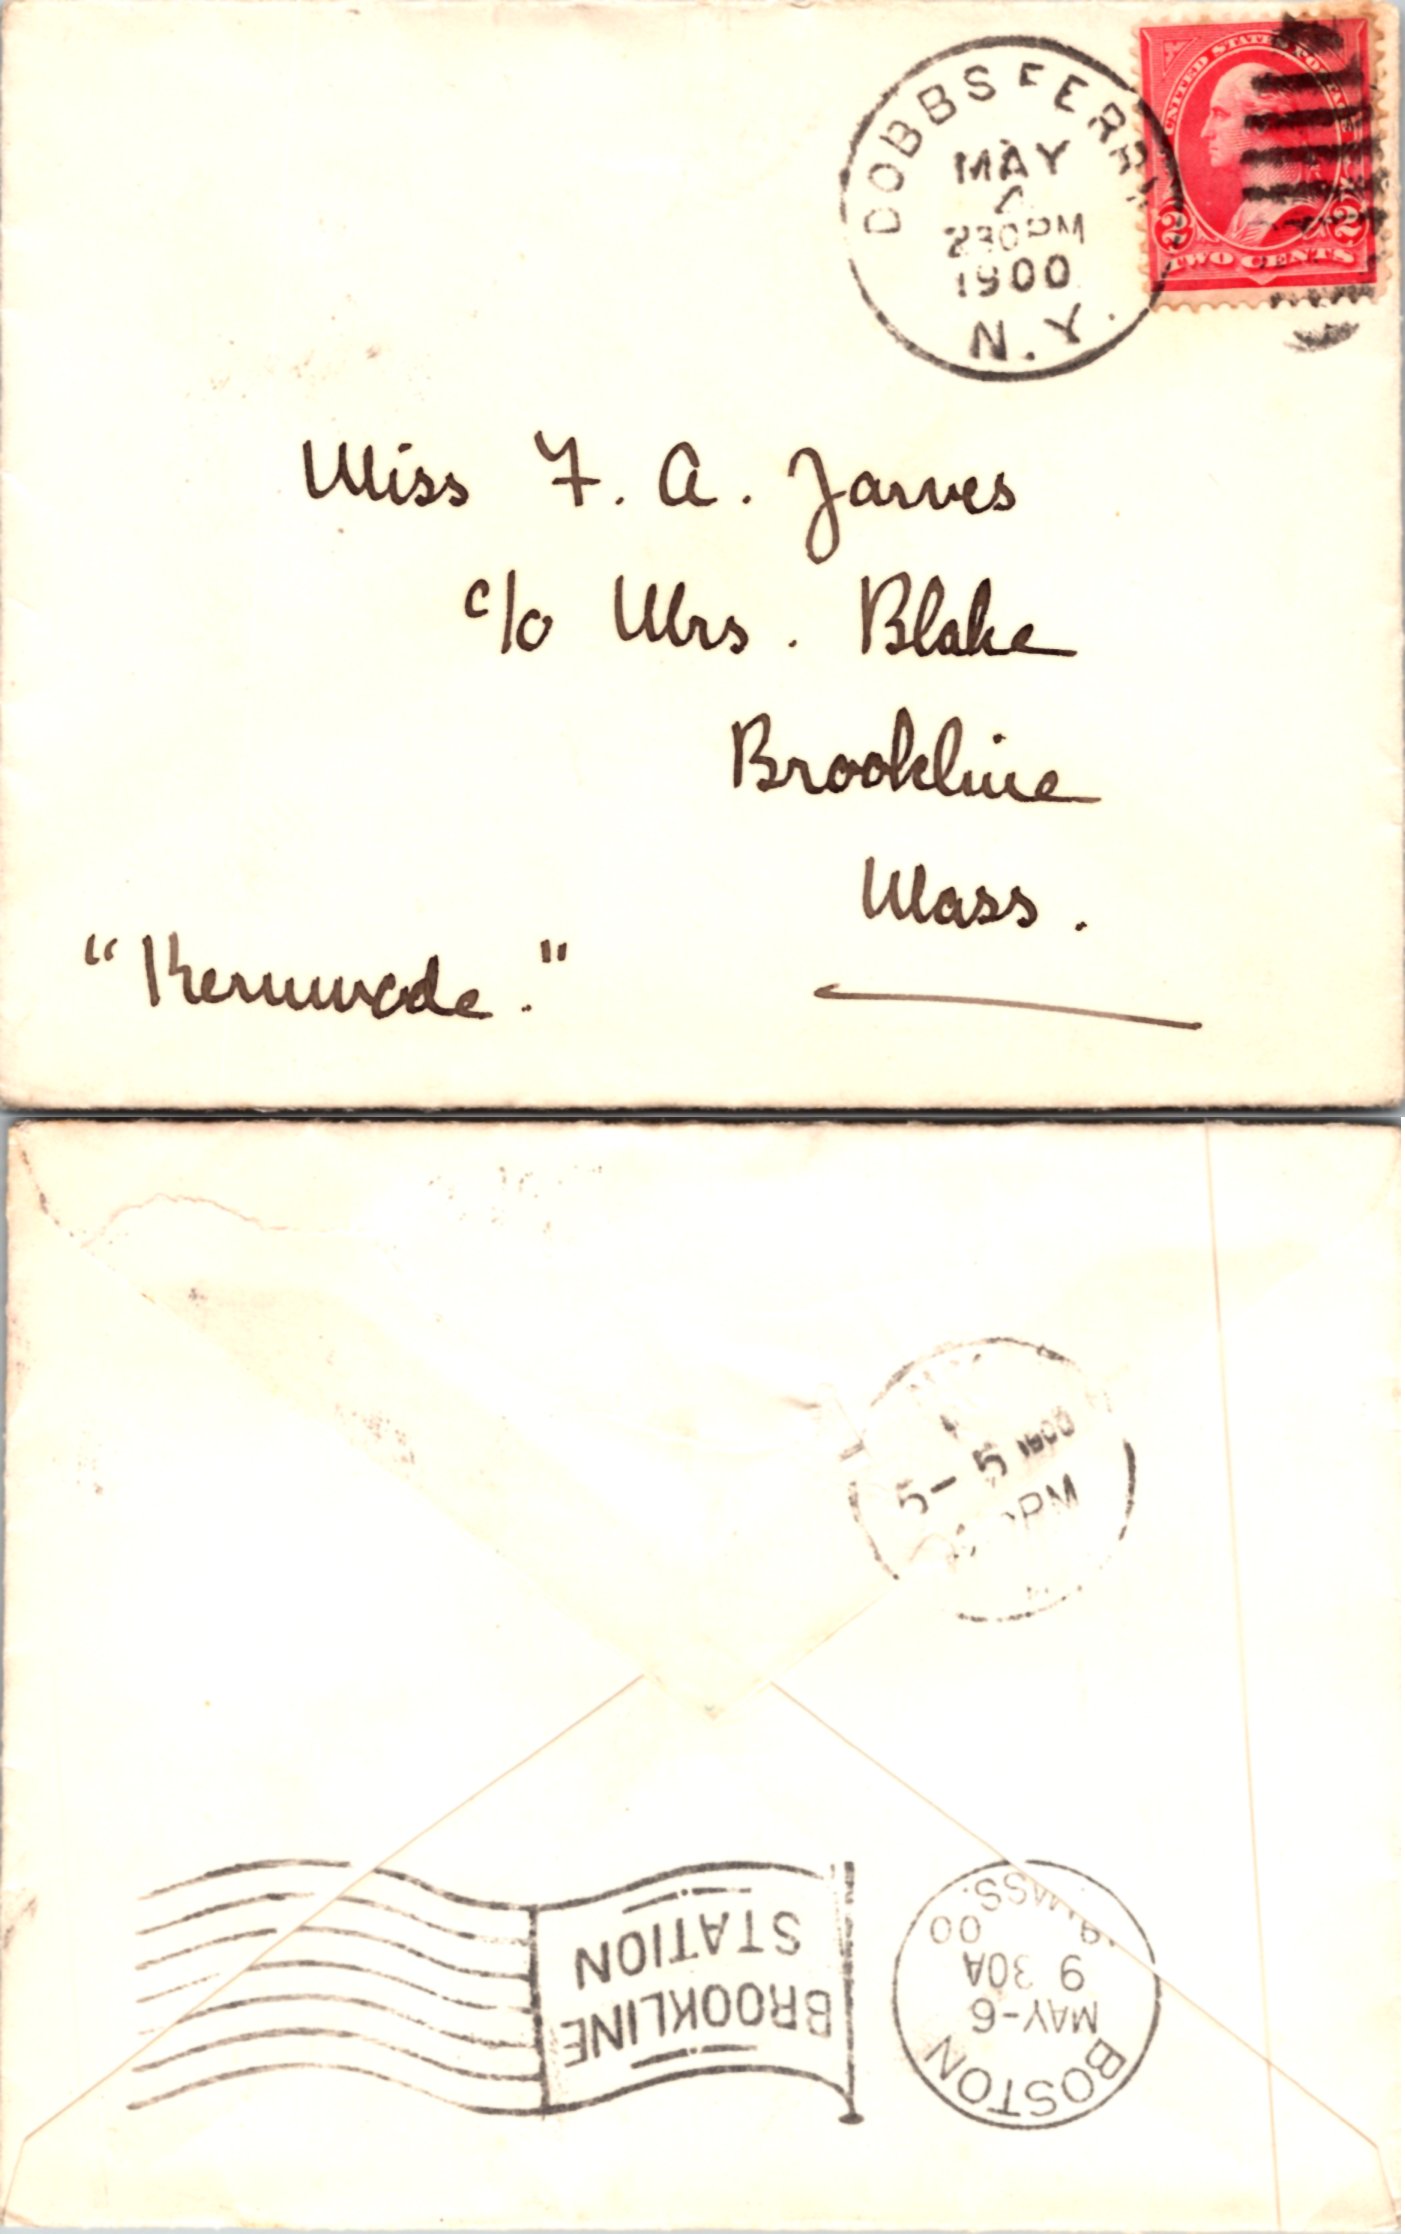 DOBBS FERRY
MAY
230PM
1900
N.Y.
UNITED STATES POSTAGE
2 2
TWO CENTS
Miss F. A. Jarves
c/o Mrs. Blake
Brookline
Mass.
"Kernwode."
5-5 1900
PM
BROOKLINE
STATION
BOSTON
MAY-6
9 30A
00
MASS.